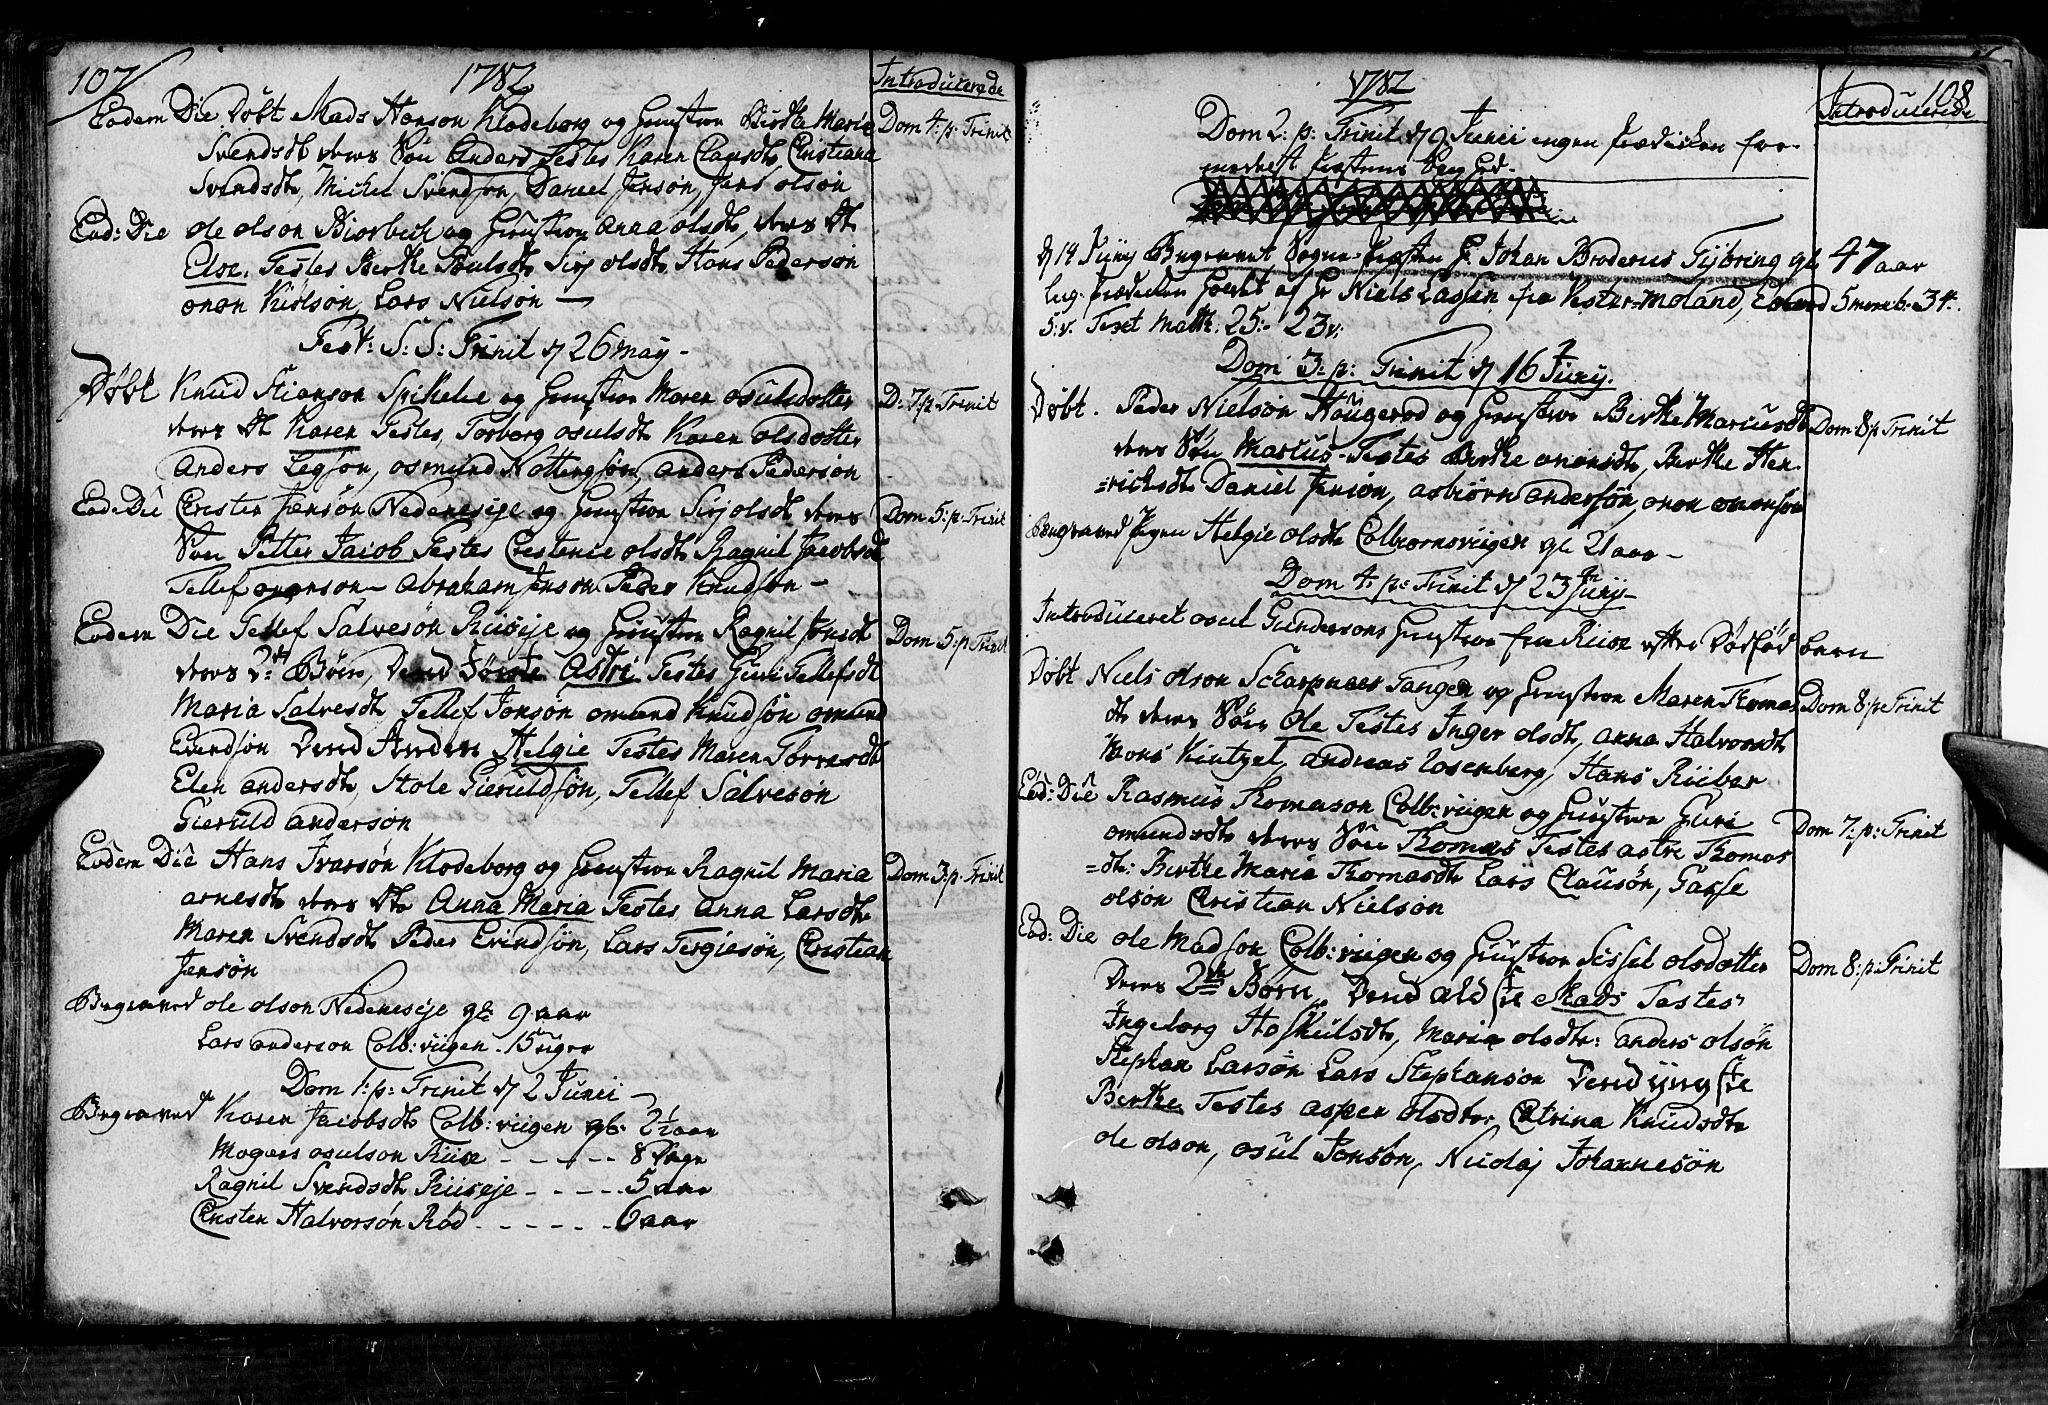 107
1782
Introducerede
Eodem Die Døbt Mads Hanson Klodeborg og Hustroe Birthe Maria
Dom 4: p: Trinit
Svendsdt deres Søn Anders Testes Karen Clausdt, Cristiana
Svendsdt, Michel Svendsøn, Daniel Jensøn, Jens olsøn
Eod: Die ole olson Biorbech og Hustroe Anna olsdt, deres Dt
Testes Berthe Poulsdt, Sirj olsdt, Hans Pedersøn
onon Nielsøn, Lars Nielsøn —
Fest: S: S: Trinit d 26 may -
Døbt Knud Stianson Spikelie og Hustroe Maren osulsdotter
D: 7 p: Trinit
deres Dt Karen Testes Torborg osulsdt, Karen olsdotter
Anders Legsøn, osmund Nottolfsøn, anders Pedersøn
Eod: Die Crister Jensøn Nedeneseje og Hustroe Sirj olsdt, deres
Dom 5: p: Trinit
Søn Petter Jacob Testes Crestence olsdt, Ragnil Jacobsdt
Tellef ononson - Abraham Jenson Peder Knudsøn -
Eodem Die Tellef Salvesøn Riiseje og Hustroe Ragnil Jonsdt
Dom 5: p: Trinit
deres 2de Børn, Dend Første Astri Testes Guri Tellefsdt
Maria Salvesdt, Tellef Jonsøn omund Knudsøn omund
Evendsøn Dend Anden Helgie Testes Maren Torresdt
Elen andersdt, Stole Gieruldsøn, Tellef Salvesøn
Gieruld anderson
Eodem Die Hans Ivarsøn Klodeborg og Hustroe Ragnil Maria
Dom 3: p: Trinit
arnesdt deres Dt Anna Maria Testes anna Larsdt
Maren Svendsdt Peder Evindsøn, Lars Tergiesøn, Cristian
Jensøn
Begraved ole olson Nedeneseje gl: 9 aar
Lars anderson Colb: viigen - 15 uger
Dom 1: p: Trinit d 2 Junii -
Begraved Karen Jacobsdt Colb: viigen gl: 2½ aar
Mogens osulson Riise - - - - - 8 Uger
Ragnil Svendsdt Riiseje - - - - - 5 aar
Cristen Halvorsøn Rød - - - - - - 6 aar
1782
108
Introducerede
Dom 2: p: Trinit d 9 Junii ingen Prædicken for-
medelst Præstens Død
d 14 Junij Begravet Sogne-Præsten Hr Johan Broderus Tybring gl 47 aar
lig-Prædicken holdet af Hr Niels Lassen fra Vester-Moland, 5 maaneder 3 u:
Text Matth: 25: 23 v:
Dom 3: p: Trinit d 16 Junij.
Døbt. Peder Nielsøn Haugerød og Hustroe Birthe Mariusdt
Dom 8 p Trinit
deres Søn Marius - Testes Birthe ononsdt, Berthe Hen
=richsdt Daniel Jensøn, asbiørn andersøn, onon ononsøn
Begraved Pigen Helgie olsdt Colbiørnsviigen gl: 21 aar -
Dom 4: p: Trinit d 23 Junij -
Introduceret osul Gundersons Hustroe fra Riise efter Dødfød barn
Døbt Niels olson Scharpnæs Tangen og Hustroe Maren Thomas
Dom 8: p: Trinit
dt deres Søn Ole Testes Inger olsdt, anna Halvorsdt
Mons Kintzel, andreas Rosenberg, Hans Riiber
Eod: Die Rasmus Thomason Colb: viigen og Hustroe Guri
Dom 7: p: Trinit
omundsdt deres Søn Thomas Testes astri Thomas
=dt: Berthe Maria Thomasdt Lars Clausøn, Gasse
olsøn Cristian Nielsøn
Eod: Die ole Madsøn Colb: viigen og Hustroe Sissel olsdotter
Dom 8: p: Trinit
Deres 2de Børn, Dend ældste Mads Testes
Ingeborg Hoskulsdt, Maria olsdt: anders olsøn
Stephan Larsøn Lars Stephansøn Dend yngste
Berthe Testes aspen olsdtr Catrina Knudsdt
ole olson, osul Jonsøn, Nicolaj Johannesøn